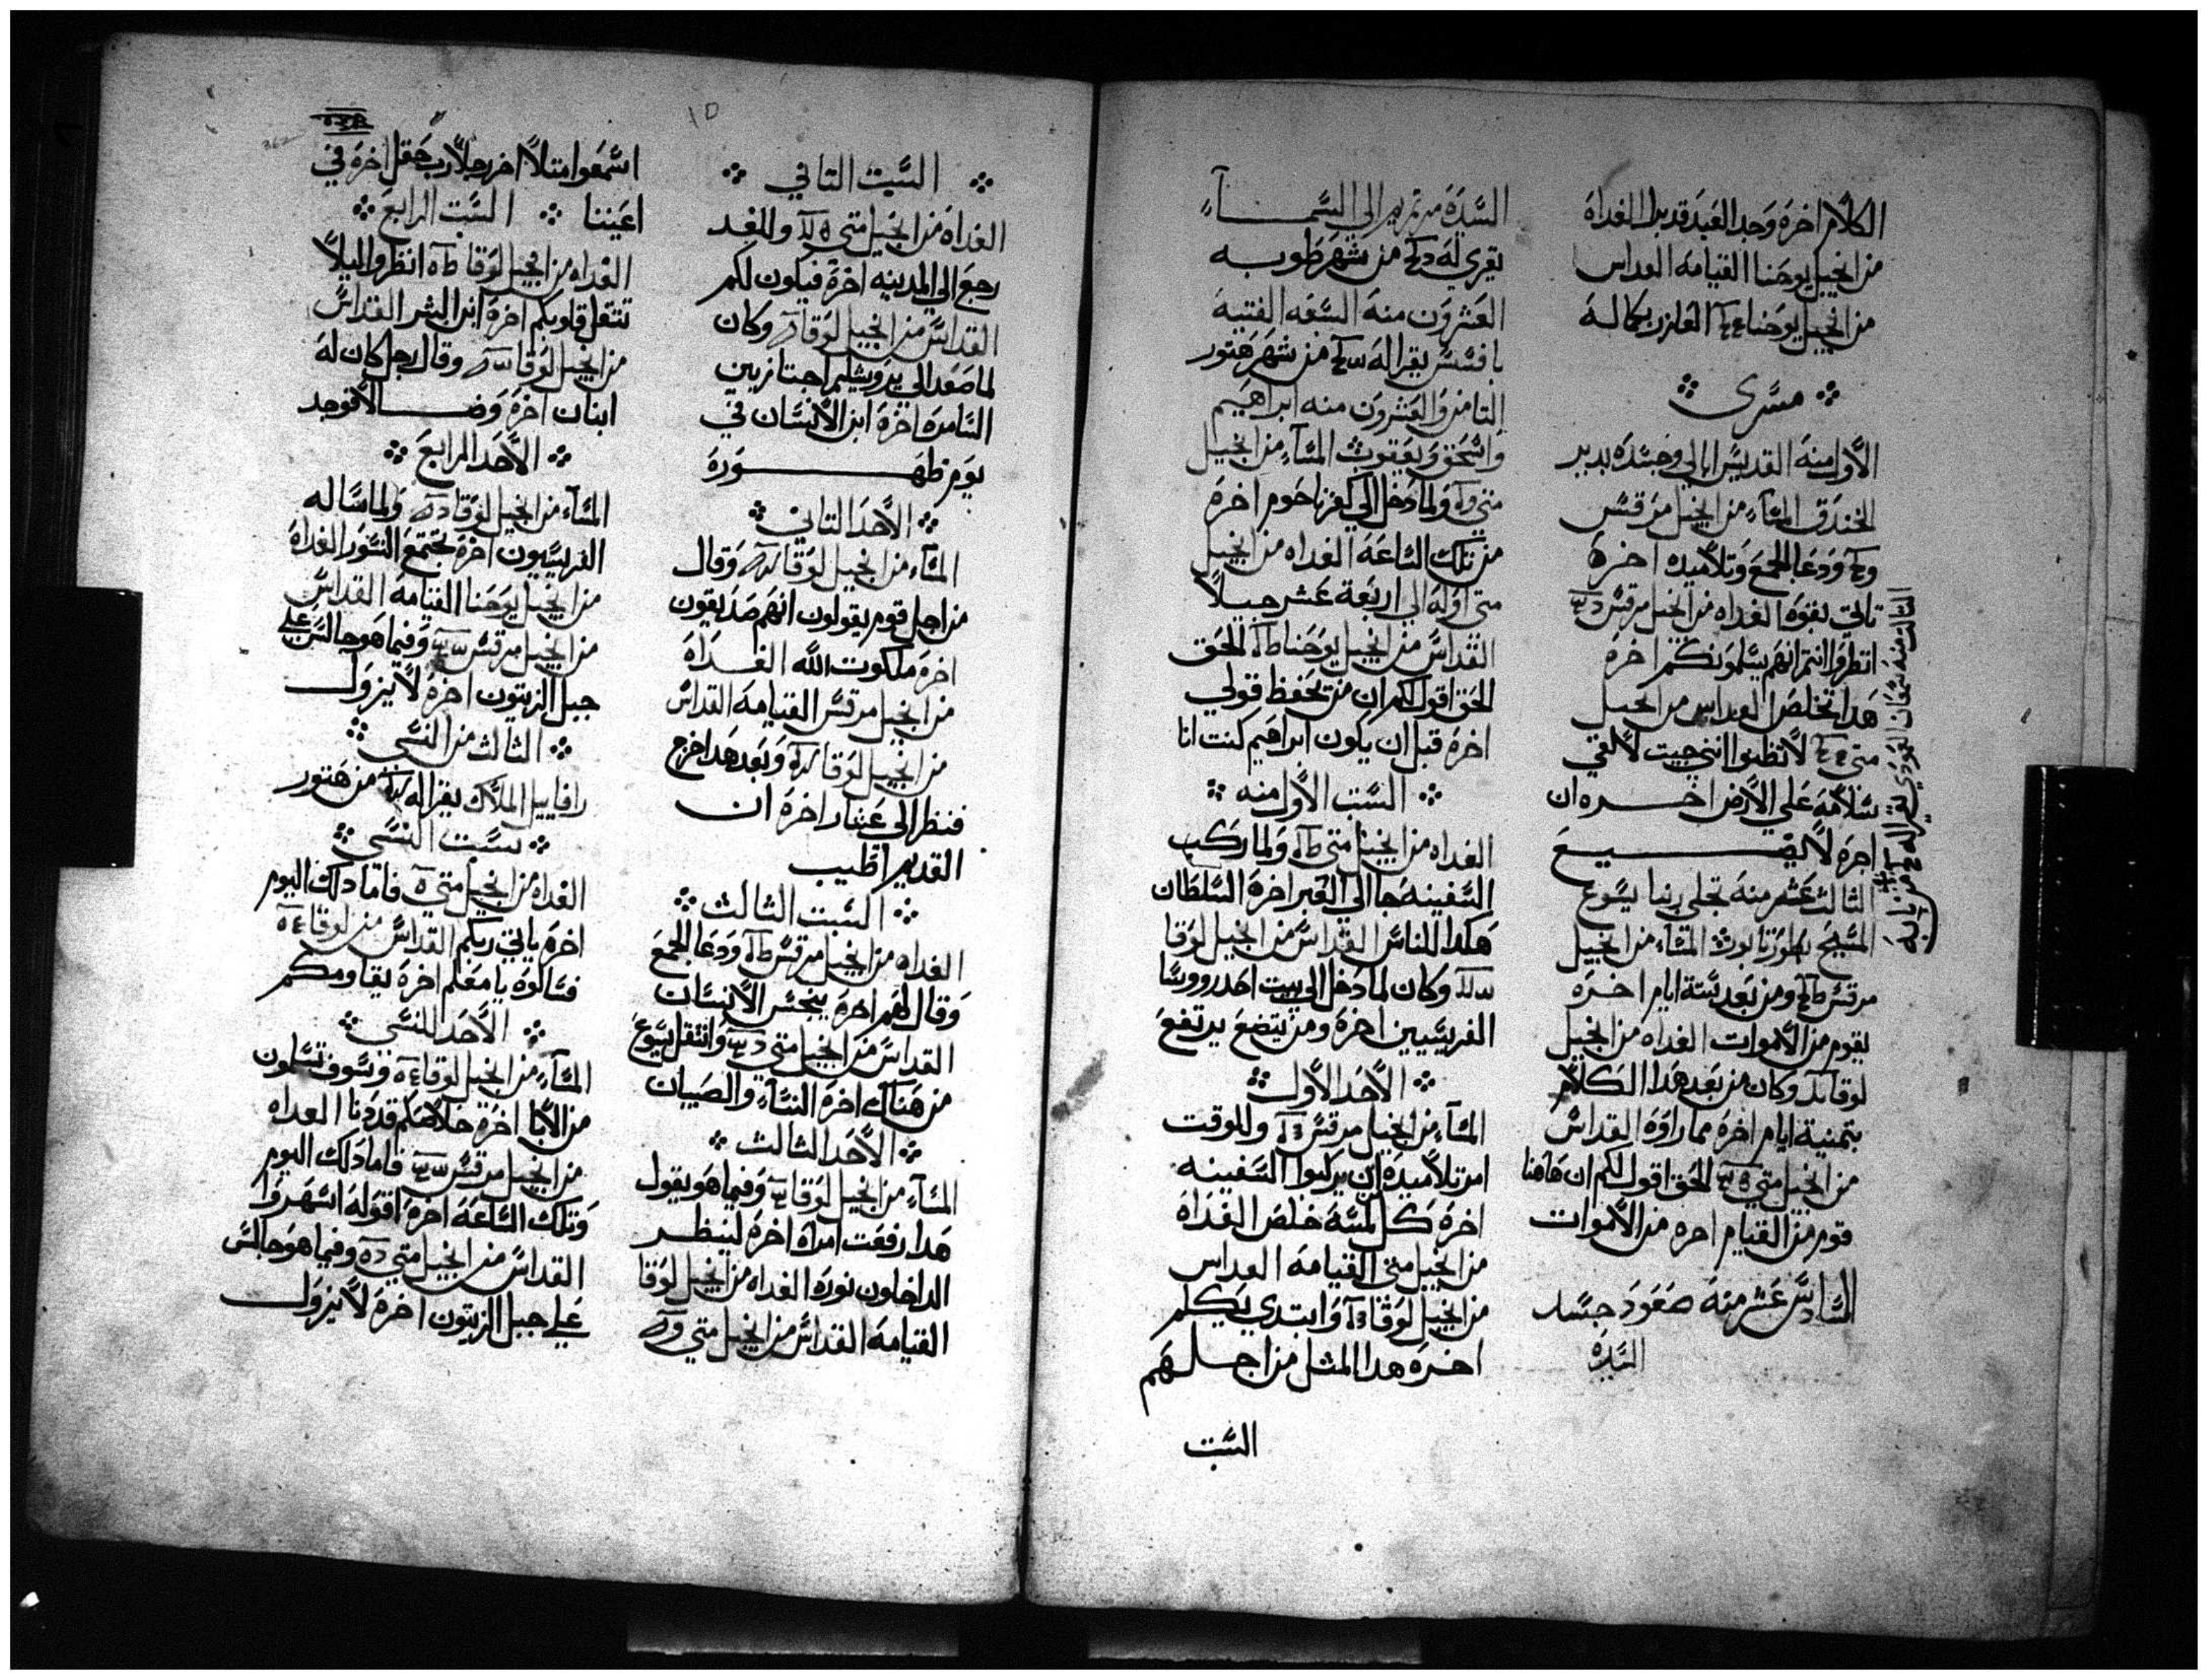 الكلام اخره وجد العبد قد برا الغداه
من انجيل يوحنا القيامه القداس
من انجيل يوحنا العازر بكماله
مسرى
الاول منه القديس ابالي وجسده بدير
الخندق المساء من انجيل مرقس
ودعا الجمع وتلاميده اخره
تاتي بقوه الغداه من انجيل مرقس
انظروا انتم انهم يسلمونكم اخره
هدا تخلص القداس من انجيل
متي لا تظنوا انني جيت لالقي
سلامه علي الارض اخره ان
اجره لا يضيع
الثالث عشر منه تجلي ربنا يسوع
المسيح بطور تابوت المساء من انجيل
مرقس ومن بعد ستة ايام اخره
يقوم من الاموات الغداه من انجيل
لوقا وكان من بعد هدا الكلام
بتمنية ايام اخره مما راوه القداس
من انجيل متي الحق اقول لكم ان هاهنا
قوم من القيام اخره من الاموات
السادس عشر منه صعود جسد
السيدة
الثالث منه سمعان العمودي يقرا له من بابه
السيدة مرتمريم الي السماء
يقري له من شهر طوبه
العشرون منه السبعه الفتيه
بافسس يقرا له من شهر هتور
التامن والعشرون منه ابراهيم
واسحق ويعقوب المساء من انجيل
متي ولما دخل الي كفرناحوم اخره
من تلك الساعة الغداه من انجيل
متي اوله الي اربعة عشر جيلاً
القداس من انجيل يوحنا الحق
الحق اقول لكم ان من يحفظ قولي
اخره قبل ان يكون ابراهيم كنت انا
السبت الاول منه
الغداه من انجيل متي ولما ركب
السفينه جا الي العبر اخره السلطان
هكدا للناس القداس من انجيل لوقا
وكان لما دخل الي بيت احد رووسا
الفريسيين اخره ومن يتضع يرتفع
الاحد الاول
المساء من انجيل مرقس وللوقت
امر تلاميده ان يركبوا السفينه
اخره كل لمسه خلص الغداه
من انجيل متي القيامه القداس
من انجيل لوقا وابتدي يكلم
اخره هدا المثل من اجلهم
السبت
السبت التاني
الغداه من انجيل متي وللغد
رجع الي المدينه اخره فيكون لكم
القداس من انجيل لوقا وكان
لما صعد الي يروشليم اجتاز بين
السامره اخره ابن الانسان في
يوم ظهوره
الاحد التاني
المساء من انجيل لوقا وقال
من اجل قوم يقولون انهم صديقون
اخره ملكوت الله الغداه
من انجيل مرقس القيامه القداس
من انجيل لوقا وبعد هدا خرج
فنظر الي عشار اخره ان
القديم اطيب
السبت الثالث
الغداه من انجيل مرقس ودعا الجمع
وقال لهم اخره ينجس الانسان
القداس من انجيل متي وانتقل يسوع
من هناك اخره النساء والصبيان
الاحد الثالث
المساء من انجيل لوقا وفيما هو يقول
هدا رفعت امراه اخره لينظر
الداخلون نوره الغداه من انجيل لوقا
القيامه القداس من انجيل متي
اسمعوا متلاً اخر رجلاً رب حقل اخره في
اعيننا السبت الرابع
الغداه من انجيل لوقا انظروا ليلا
تتقل قلوبكم اخره ابن البشر القداس
من انجيل لوقا وقال رجل كان له
ابنان اخره وضالا فوجد
الاحد الرابع
المساء من انجيل لوقا ولما ساله
الفريسيون اخره تجتمع النسور الغداه
من انجيل يوحنا القيامه القداس
من انجيل مرقس وفيما هو جالس علي
جبل الزيتون اخره لا يزول
الثالث من النسي
رافاييل الملاك يقرا له من هتور
سبت النسي
الغداه من انجيل متي فاما دلك اليوم
اخره ياتي ربكم القداس من لوقا
فسالوه يا معلم اخره يقاومكم
الاحد للنسي
المساء من انجيل لوقا وسوف تسلمون
من الابا اخره خلاصكم قد دنا الغداه
من انجيل مرقس فاما دلك اليوم
وتلك الساعة اخره اقوله اسهروا
القداس من انجيل متي وفيما هو جالس
علي جبل الزيتون اخره لا يزول